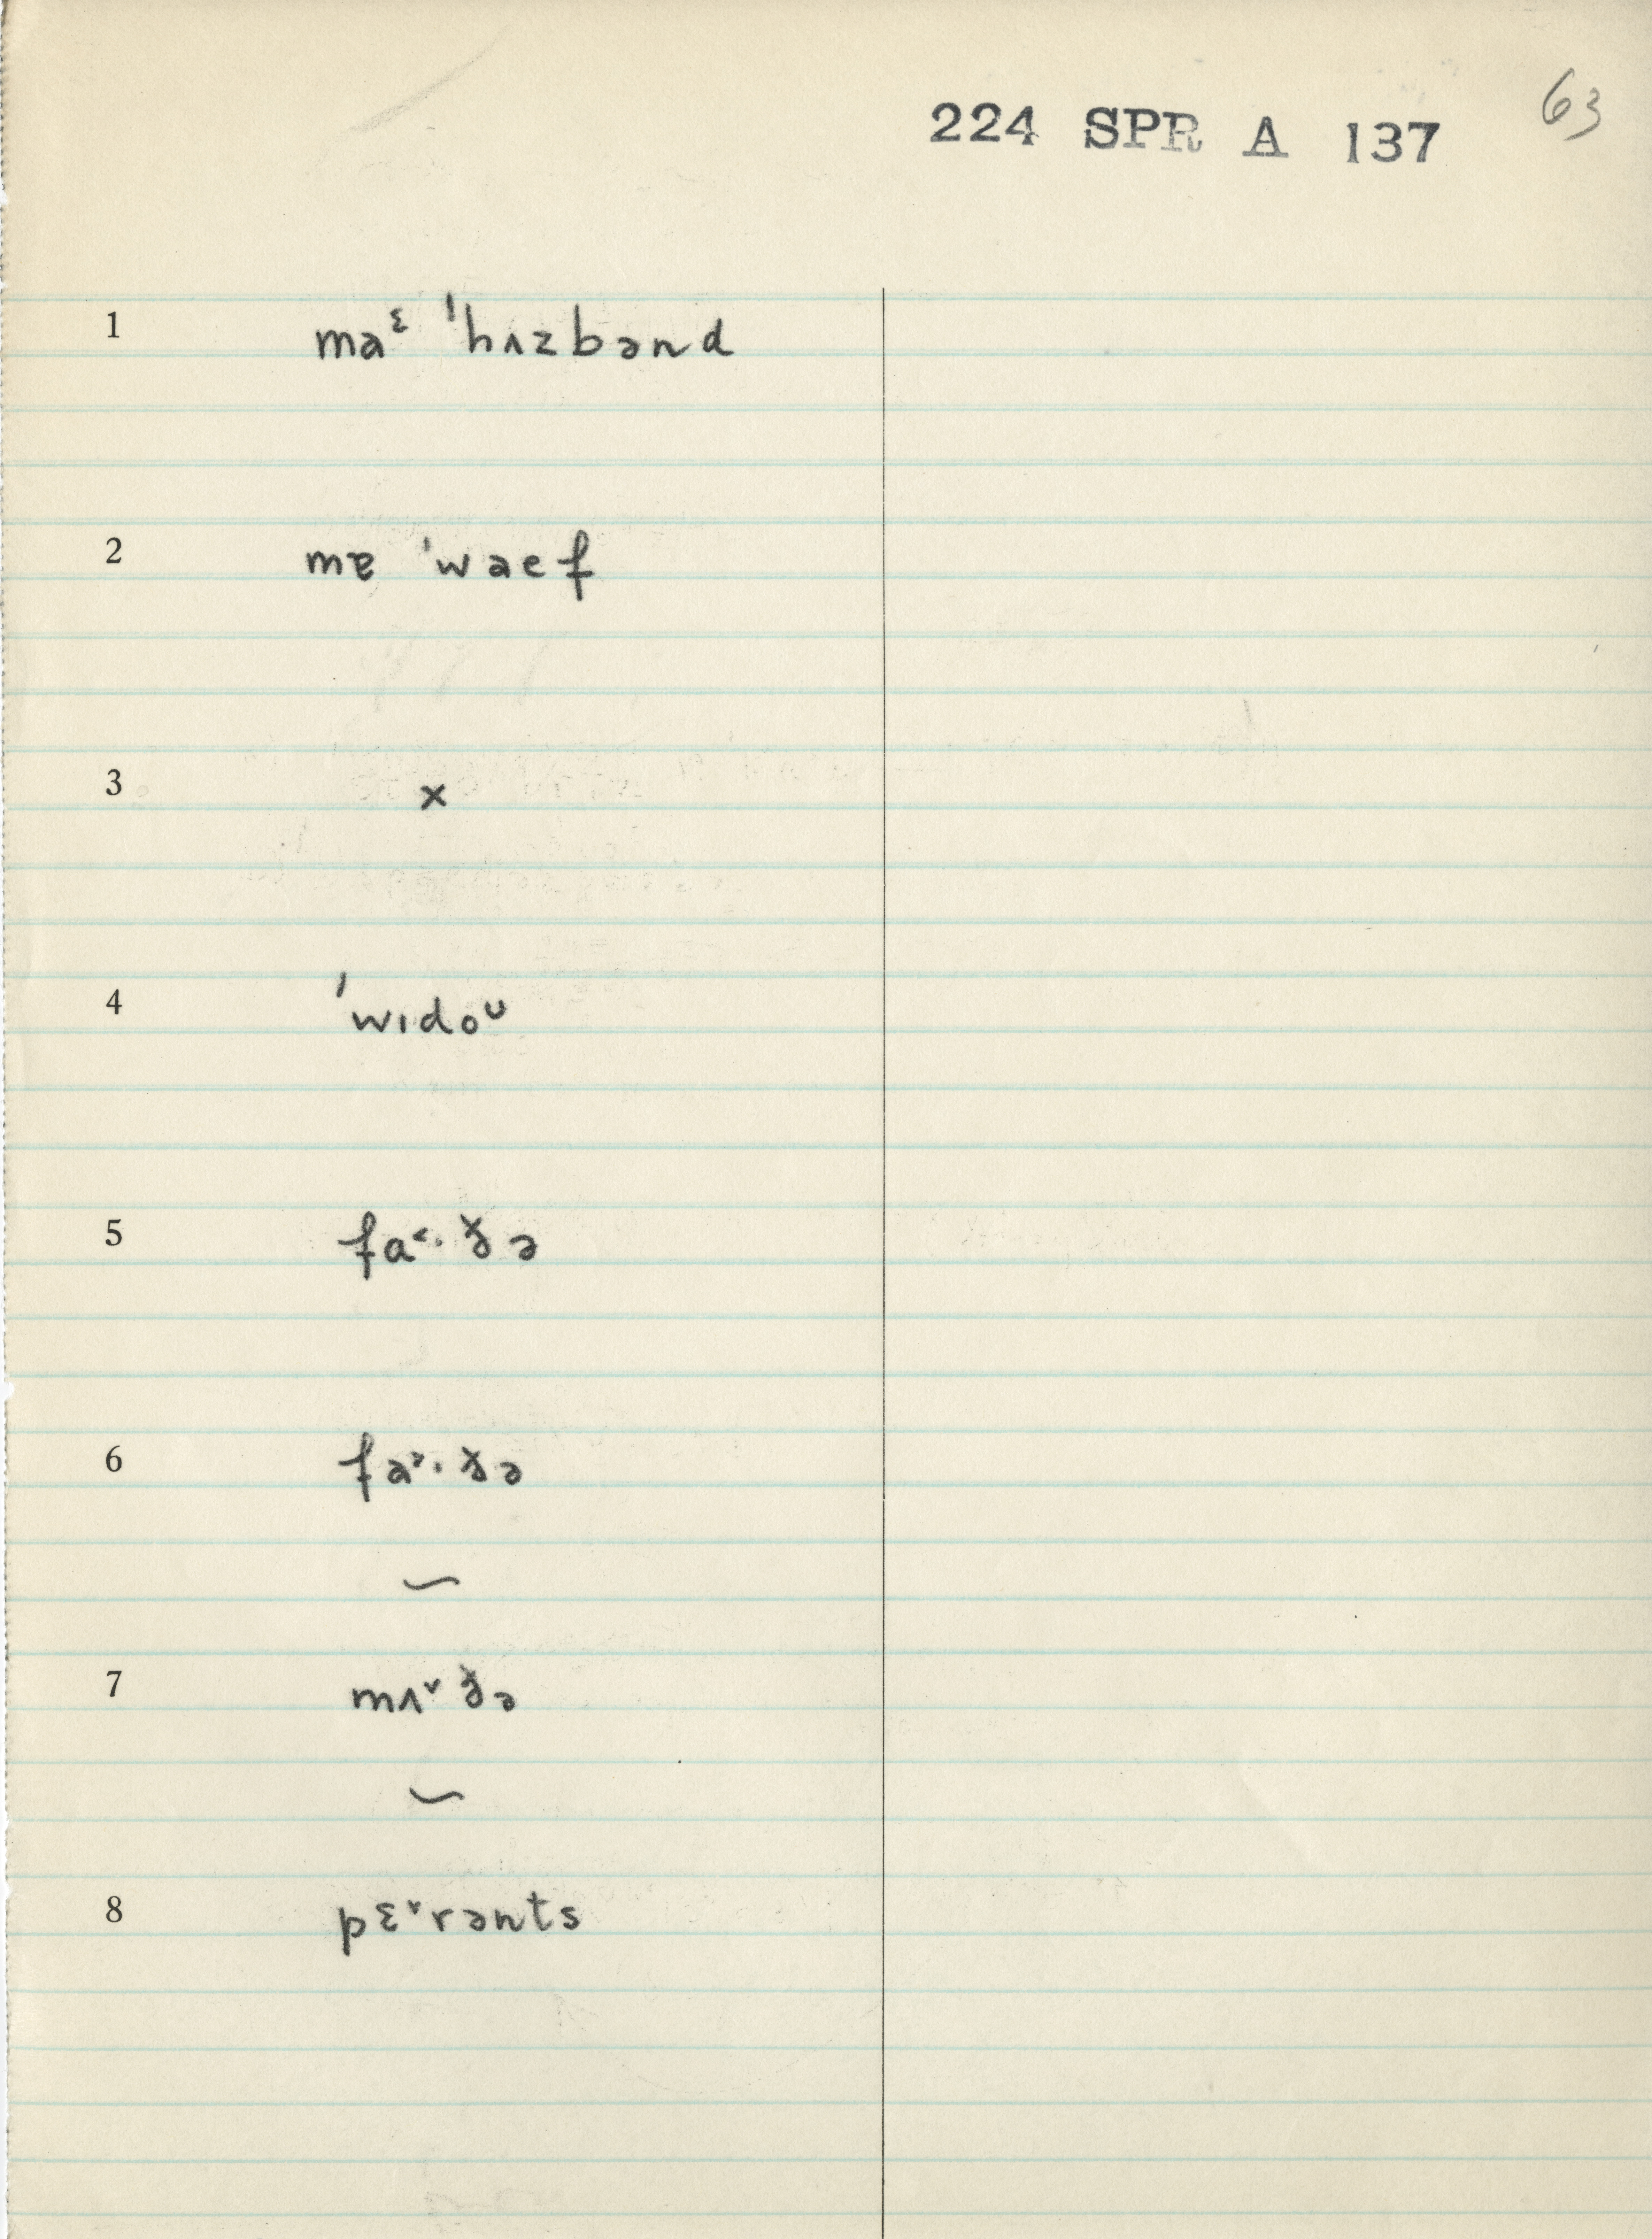 63
224 SPR A 137
1 maᵋ ˈhʌzbənd
2 mɐ ˈwaef
3 x
4 ˈwɪdoᶷ
5 fa˂·ɣ̵ə
6 fa˃·ɣ̵ə
∽
7 mʌ˅ɣ̵ə
∽
8 pɛ˅rənts